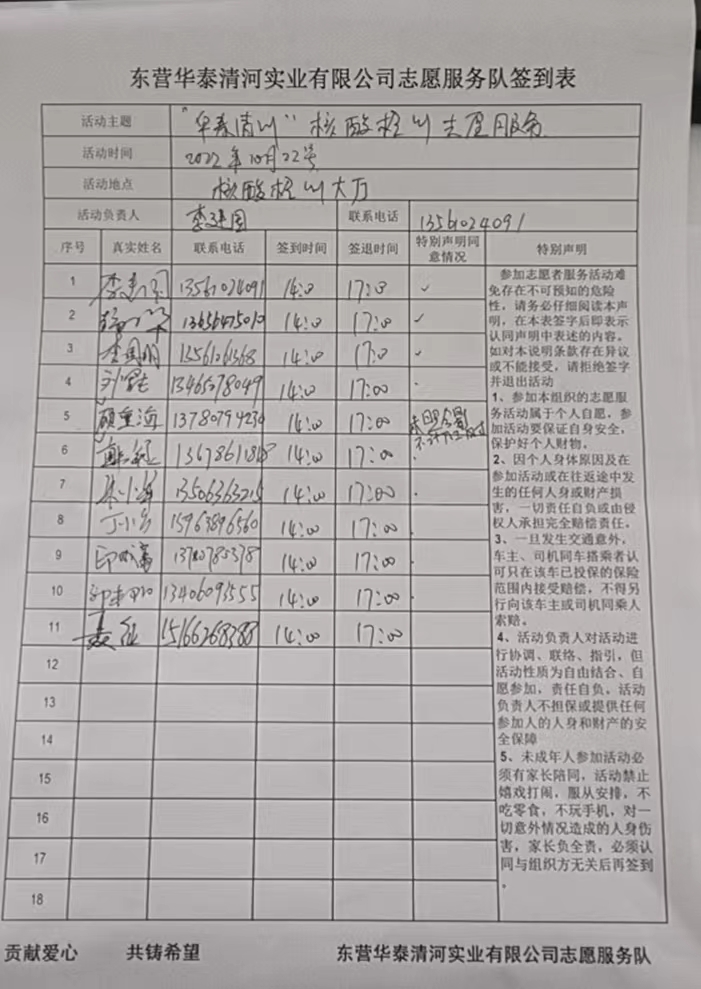 东营华泰清河实业有限公司志愿服务队签到表
活动主题 "华泰清川"核酸检测志愿服务
活动时间 2022年10月22号
活动地点 核酸检测大厅
活动负责人 李建国 联系电话 13561024091
序号 真实姓名 联系电话 签到时间 签退时间 特别声明同意情况 特别声明
1 李建国 13561024091 14:00 17:00 ✓
2 13656475010 14:00 17:00 ✓
3 李国明 13561261368 14:00 17:0 ✓
4 13465078049 14:00 17:00
5 顾重海 13780794230 14:00 17:00
6 13678611818 14:00 17:00
7 13506363215 14:00 17:00
8 丁小芳 15963896560 14:00 17:00
9 13780785378 14:00 17:00
10 13406093555 14:00 17:00
11 聂 15166268388 14:00 17:00
12
13
14
15
16
17
18
参加志愿者服务活动难
免存在不可预知的危险
性，请务必仔细阅读本声
明，在本表签字后即表示
认同声明中表述的内容。
如对本说明条款存在异议
或不能接受，请拒绝签字
并退出活动
1、参加本组织的志愿服
务活动属于个人自愿，参
加活动要保证自身安全，
保护好个人财物。
2、因个人身体原因及在
参加活动或在往返途中发
生的任何人身或财产损
害，一切责任自负或由侵
权人承担完全赔偿责任。
3、一旦发生交通意外，
车主、司机同车搭乘者认
可只在该车已投保的保险
范围内接受赔偿，不得另
行向该车主或司机同乘人
索赔。
4、活动负责人对活动进
行协调、联络、指引，但
活动性质为自由结合、自
愿参加，责任自负，活动
负责人不担保或提供任何
参加人的人身和财产的安
全保障
5、未成年人参加活动必
须有家长陪同，活动禁止
嬉戏打闹，服从安排，不
吃零食，不玩手机，对一
切意外情况造成的人身伤
害，家长负全责，必须认
同与组织方无关后再签到
。
贡献爱心 共铸希望 东营华泰清河实业有限公司志愿服务队